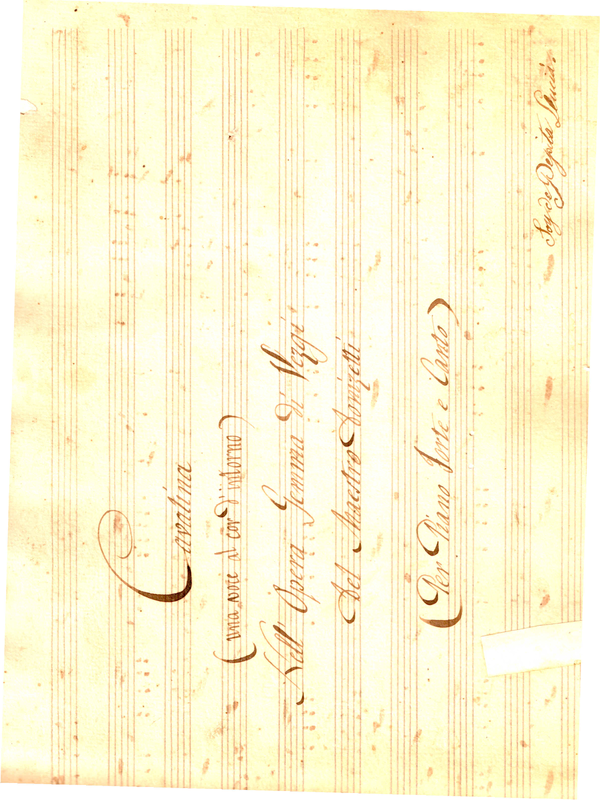 Soy de Pepita
Cavatina
(una voce al cor d'intorno)
Nell' Opera Gemma di Vergi
Del Maestro Donizetti
(Per Piano Forte e Canto)